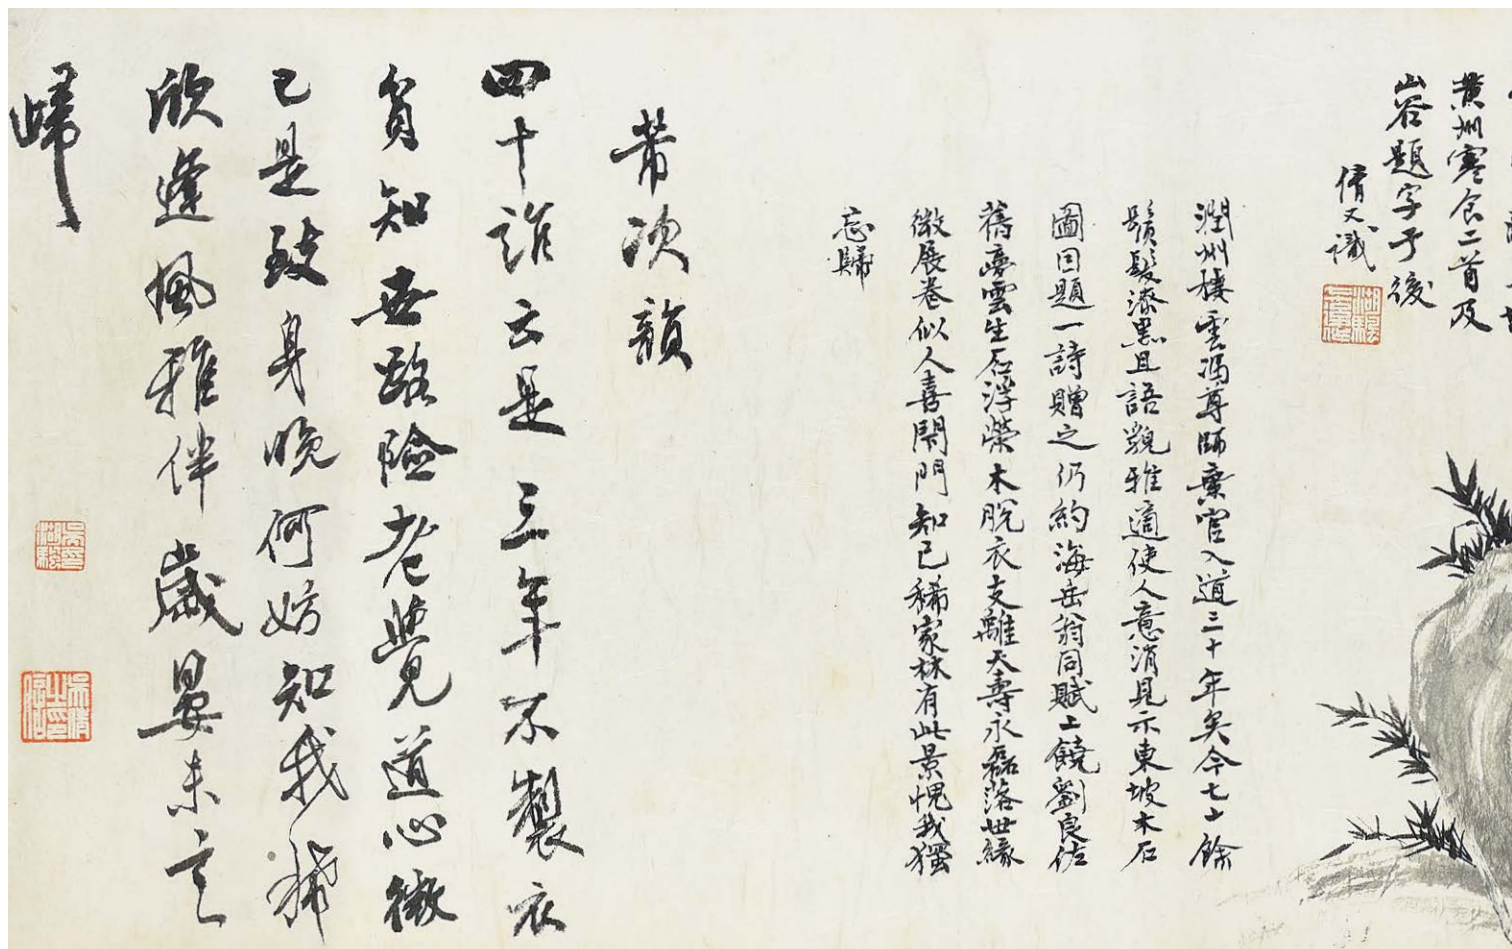 黄州寒食二首及
山谷題字于後
倩又識
潤州棲雲馮尊師棄官入道三十年矣今七十餘
鬚髮漆黑且語貌雅適使人意消見示東坡木石
圖因題一詩贈之仍約海岳翁同賦上饒劉良佐
舊夢雲生石浮榮木脫衣支離天壽永磊落世緣
微展卷似人喜閉門知己稀家林有此景愧我獨
忘歸
芾次韻
四十誰云是三年不製衣
貧知世路險老覺道心微
已是致身晚何妨知我稀
欣逢風雅伴歲晏未言
歸